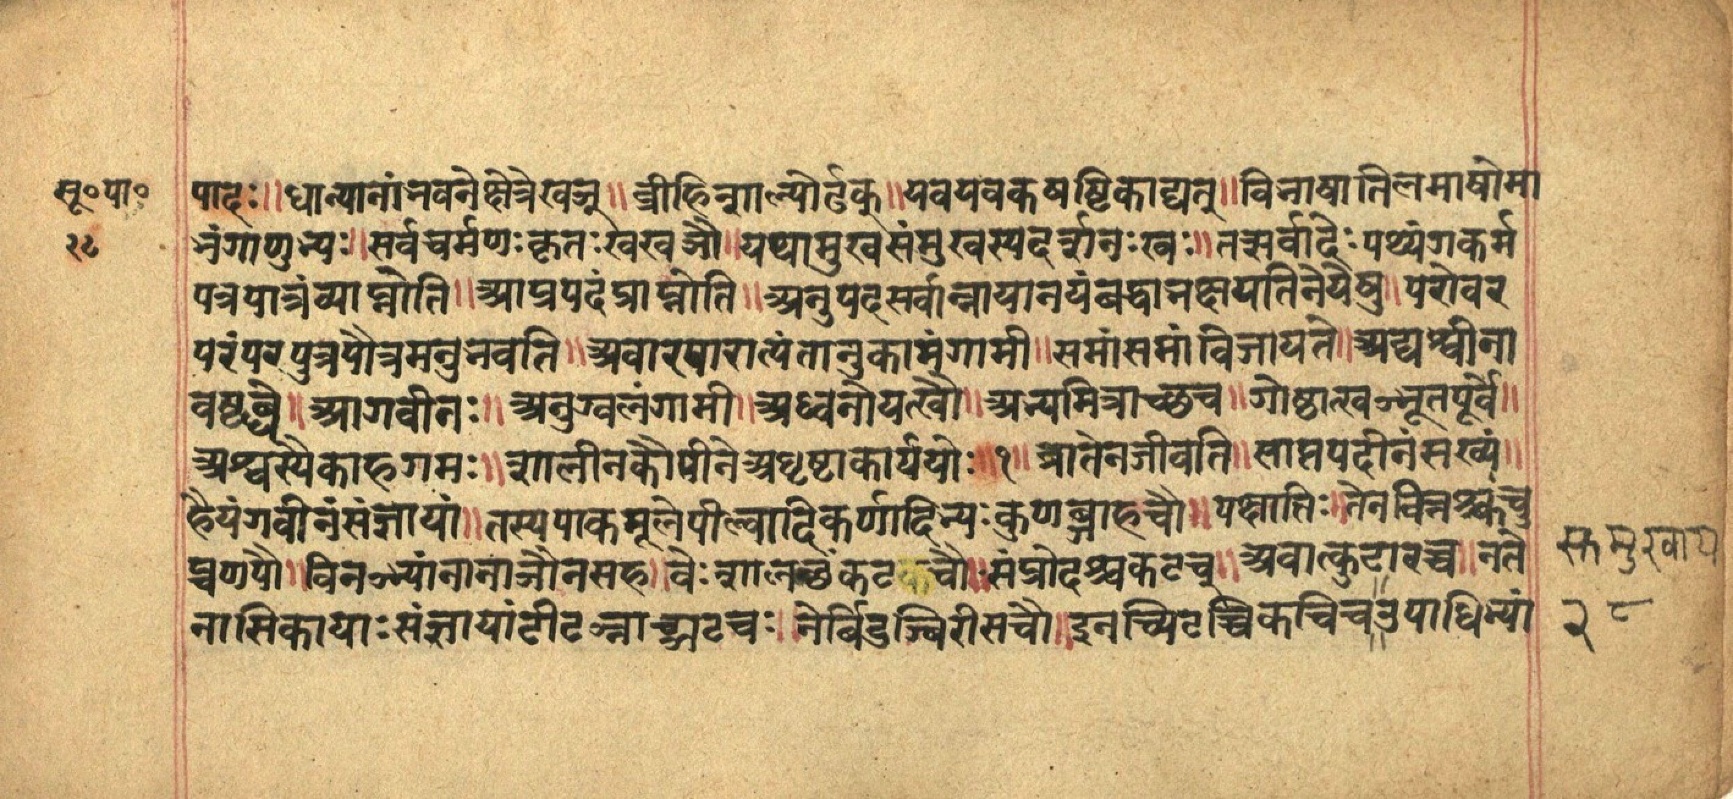 सू॰पा॰
२८
पादः॥धान्यानांभवनेक्षेत्रेखञ्॥व्रीहिशाल्योर्ढक्॥यवयवकषष्टिकाद्यत्॥विभाषातिलमाषोमा
भंगाणुभ्यः॥सर्वचर्मणःकृतःखखञौ॥यथामुखसंमुखस्यदर्शनःखः॥तत्सर्वादेःपथ्यंगकर्म
पत्रपात्रंव्याप्नोति॥आप्रपदंप्राप्नोति॥अनुपदसर्वान्नायानयंबद्धाभक्षयतिनेयेषु॥परोवर
परंपरपुत्रपौत्रमनुभवति॥अवारपारात्यंतानुकामंगामी॥समांसमांविजायते॥अद्यश्वीना
वष्टब्धे॥आगवीनः॥अनुग्वलंगामी॥अध्वनोयत्खौ॥अभ्यमित्राच्छच॥गोष्ठात्खञ्भूतपूर्वे॥
अश्वस्यैकाहगमः॥शालीनकौपीनेअधृष्टाकार्ययोः॥१॥व्रातेनजीवति॥साप्तपदीनंसख्यं॥
हैयंगवीनंसंज्ञायां॥तस्यपाकमूलेपील्वादिकर्णादिभ्यःकुणब्जाहचौ॥पक्षात्तिः॥तेनवित्तश्चुंचु
प्चणपौ॥विनञ्भ्यांनानाञौनसह॥वेःशालच्छंकटचौ॥संप्रोदश्चकटच्॥अवात्कुटारच्च॥नते
नासिकायाःसंज्ञायांटीटञ्नाटज्भ्रटचः॥नेर्बिडज्बिरीसचौ॥इनच्पिटच्चिकचिचउपाधिभ्यां
२८